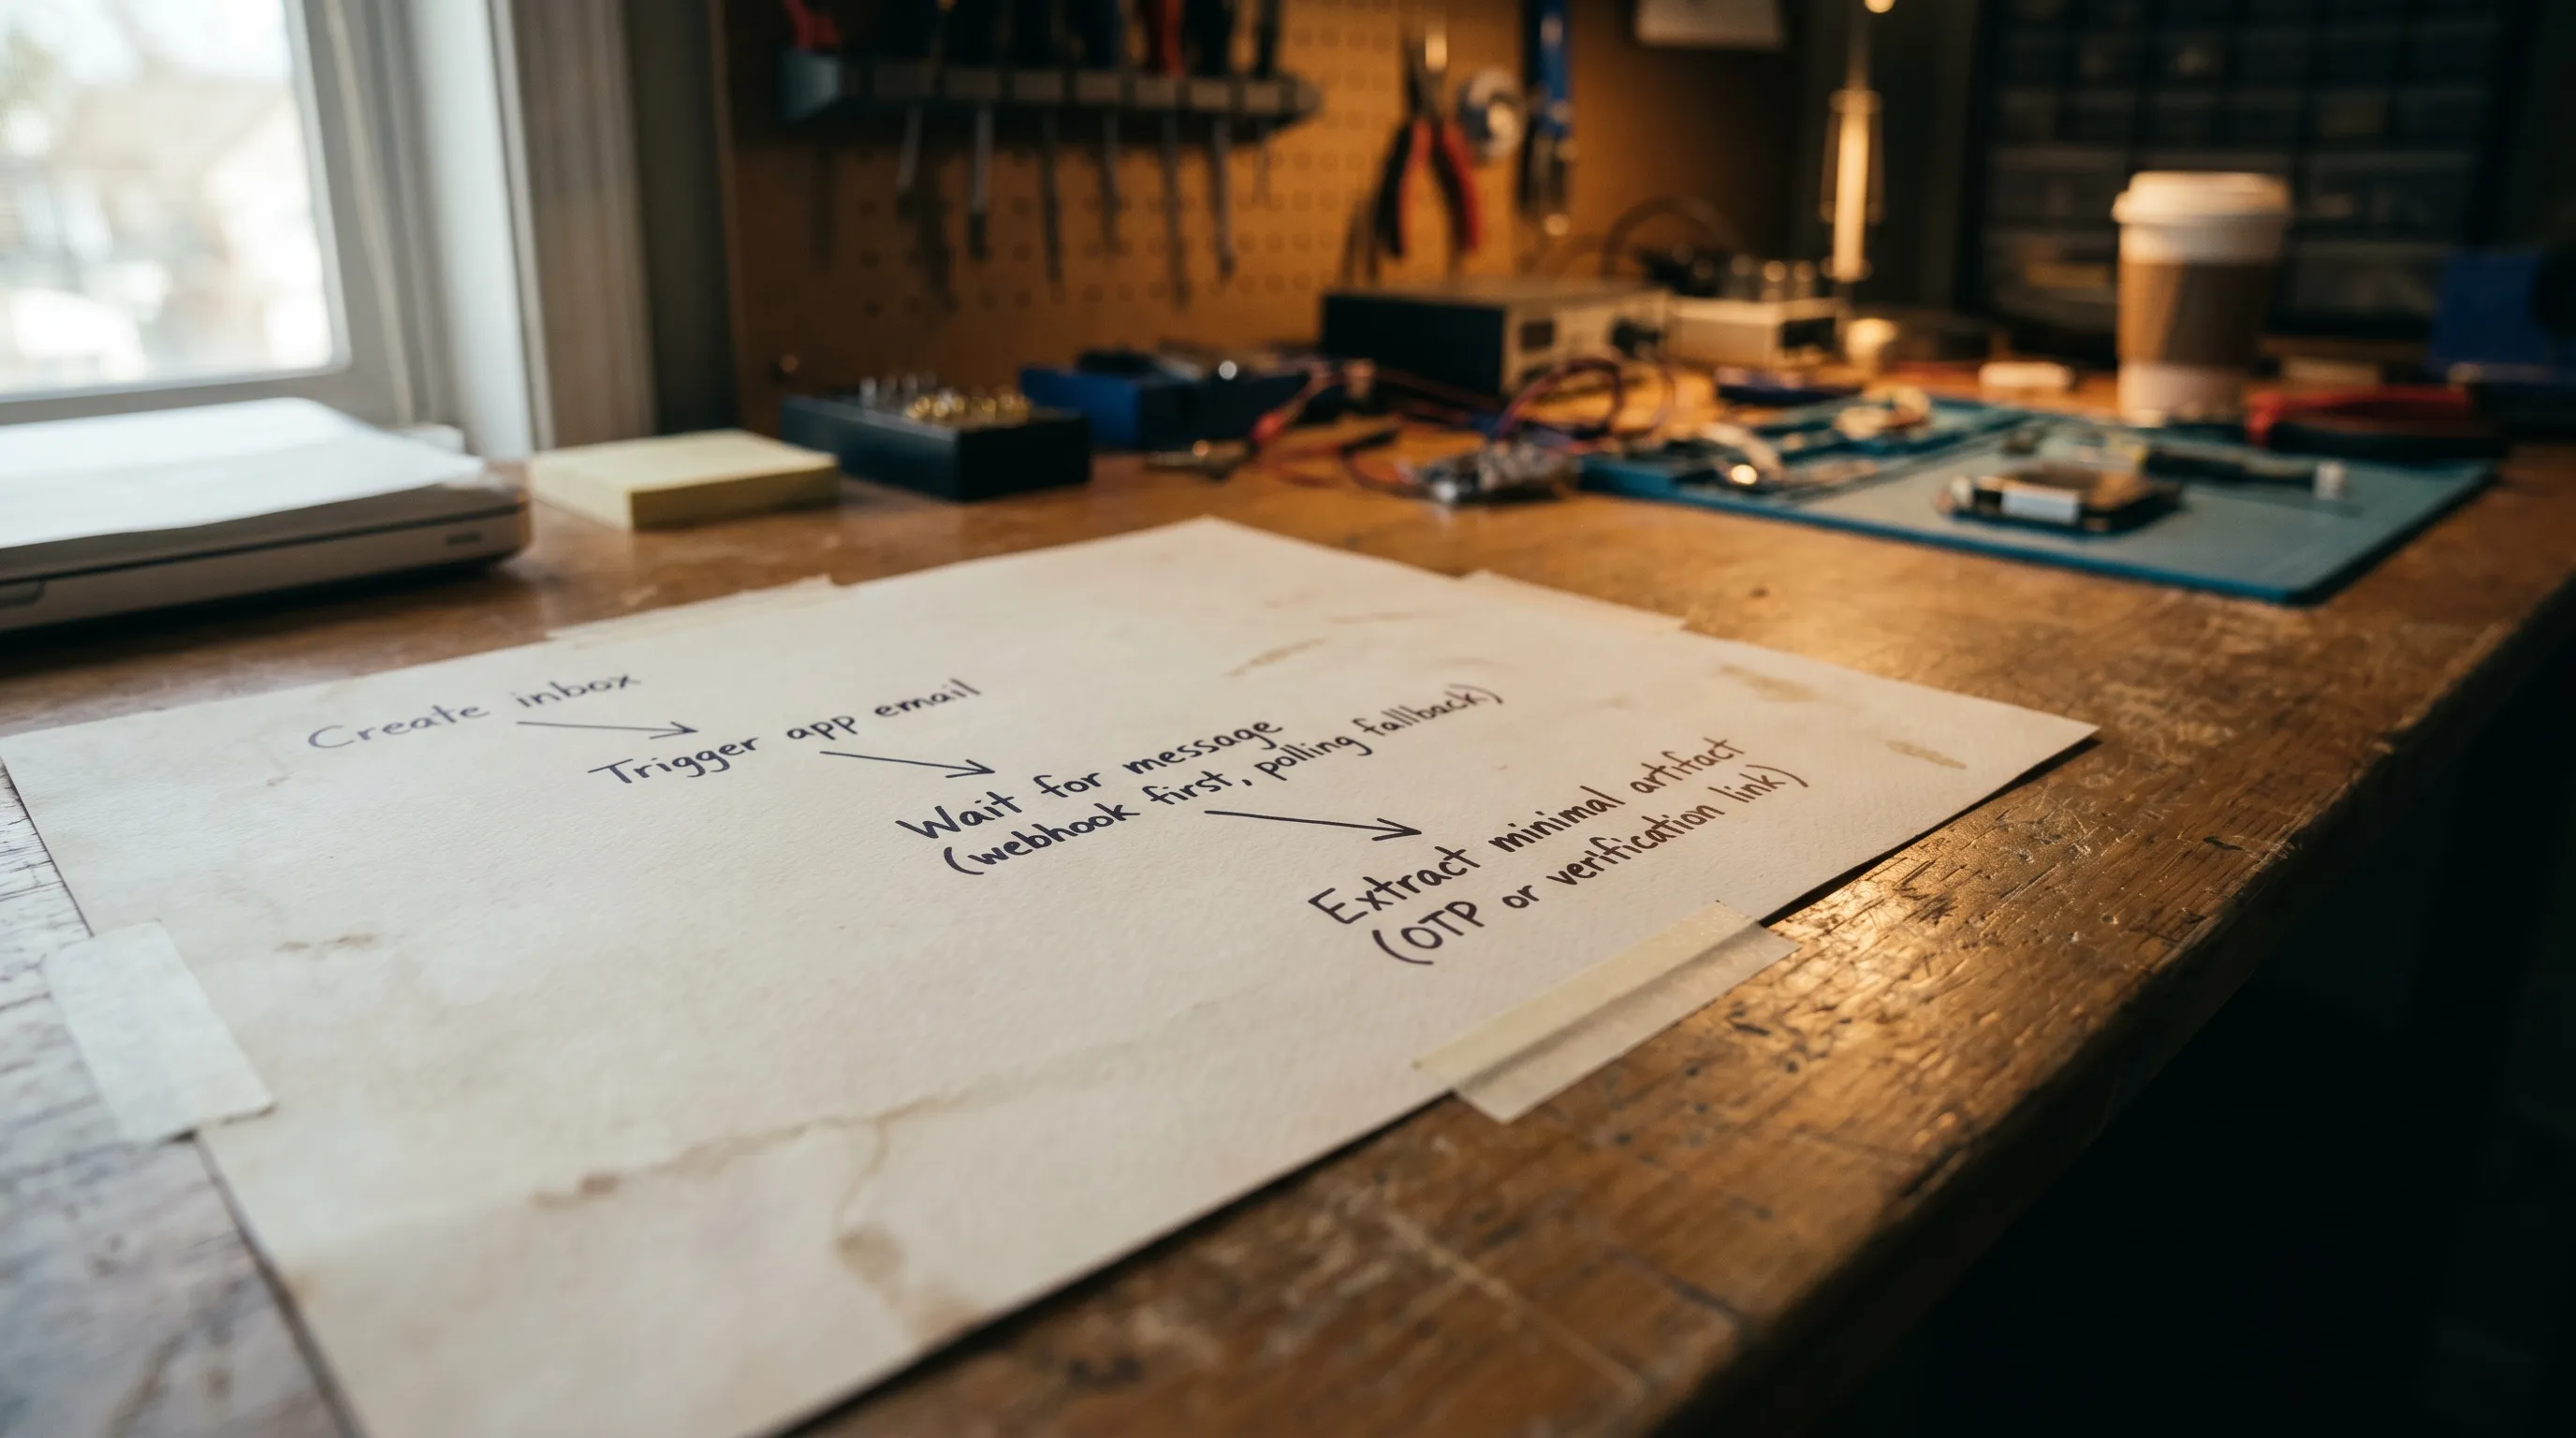 Create inbox
Trigger app email
Wait for message
(webhook first, polling fallback)
Extract minimal artifact
(OTP or verification link)